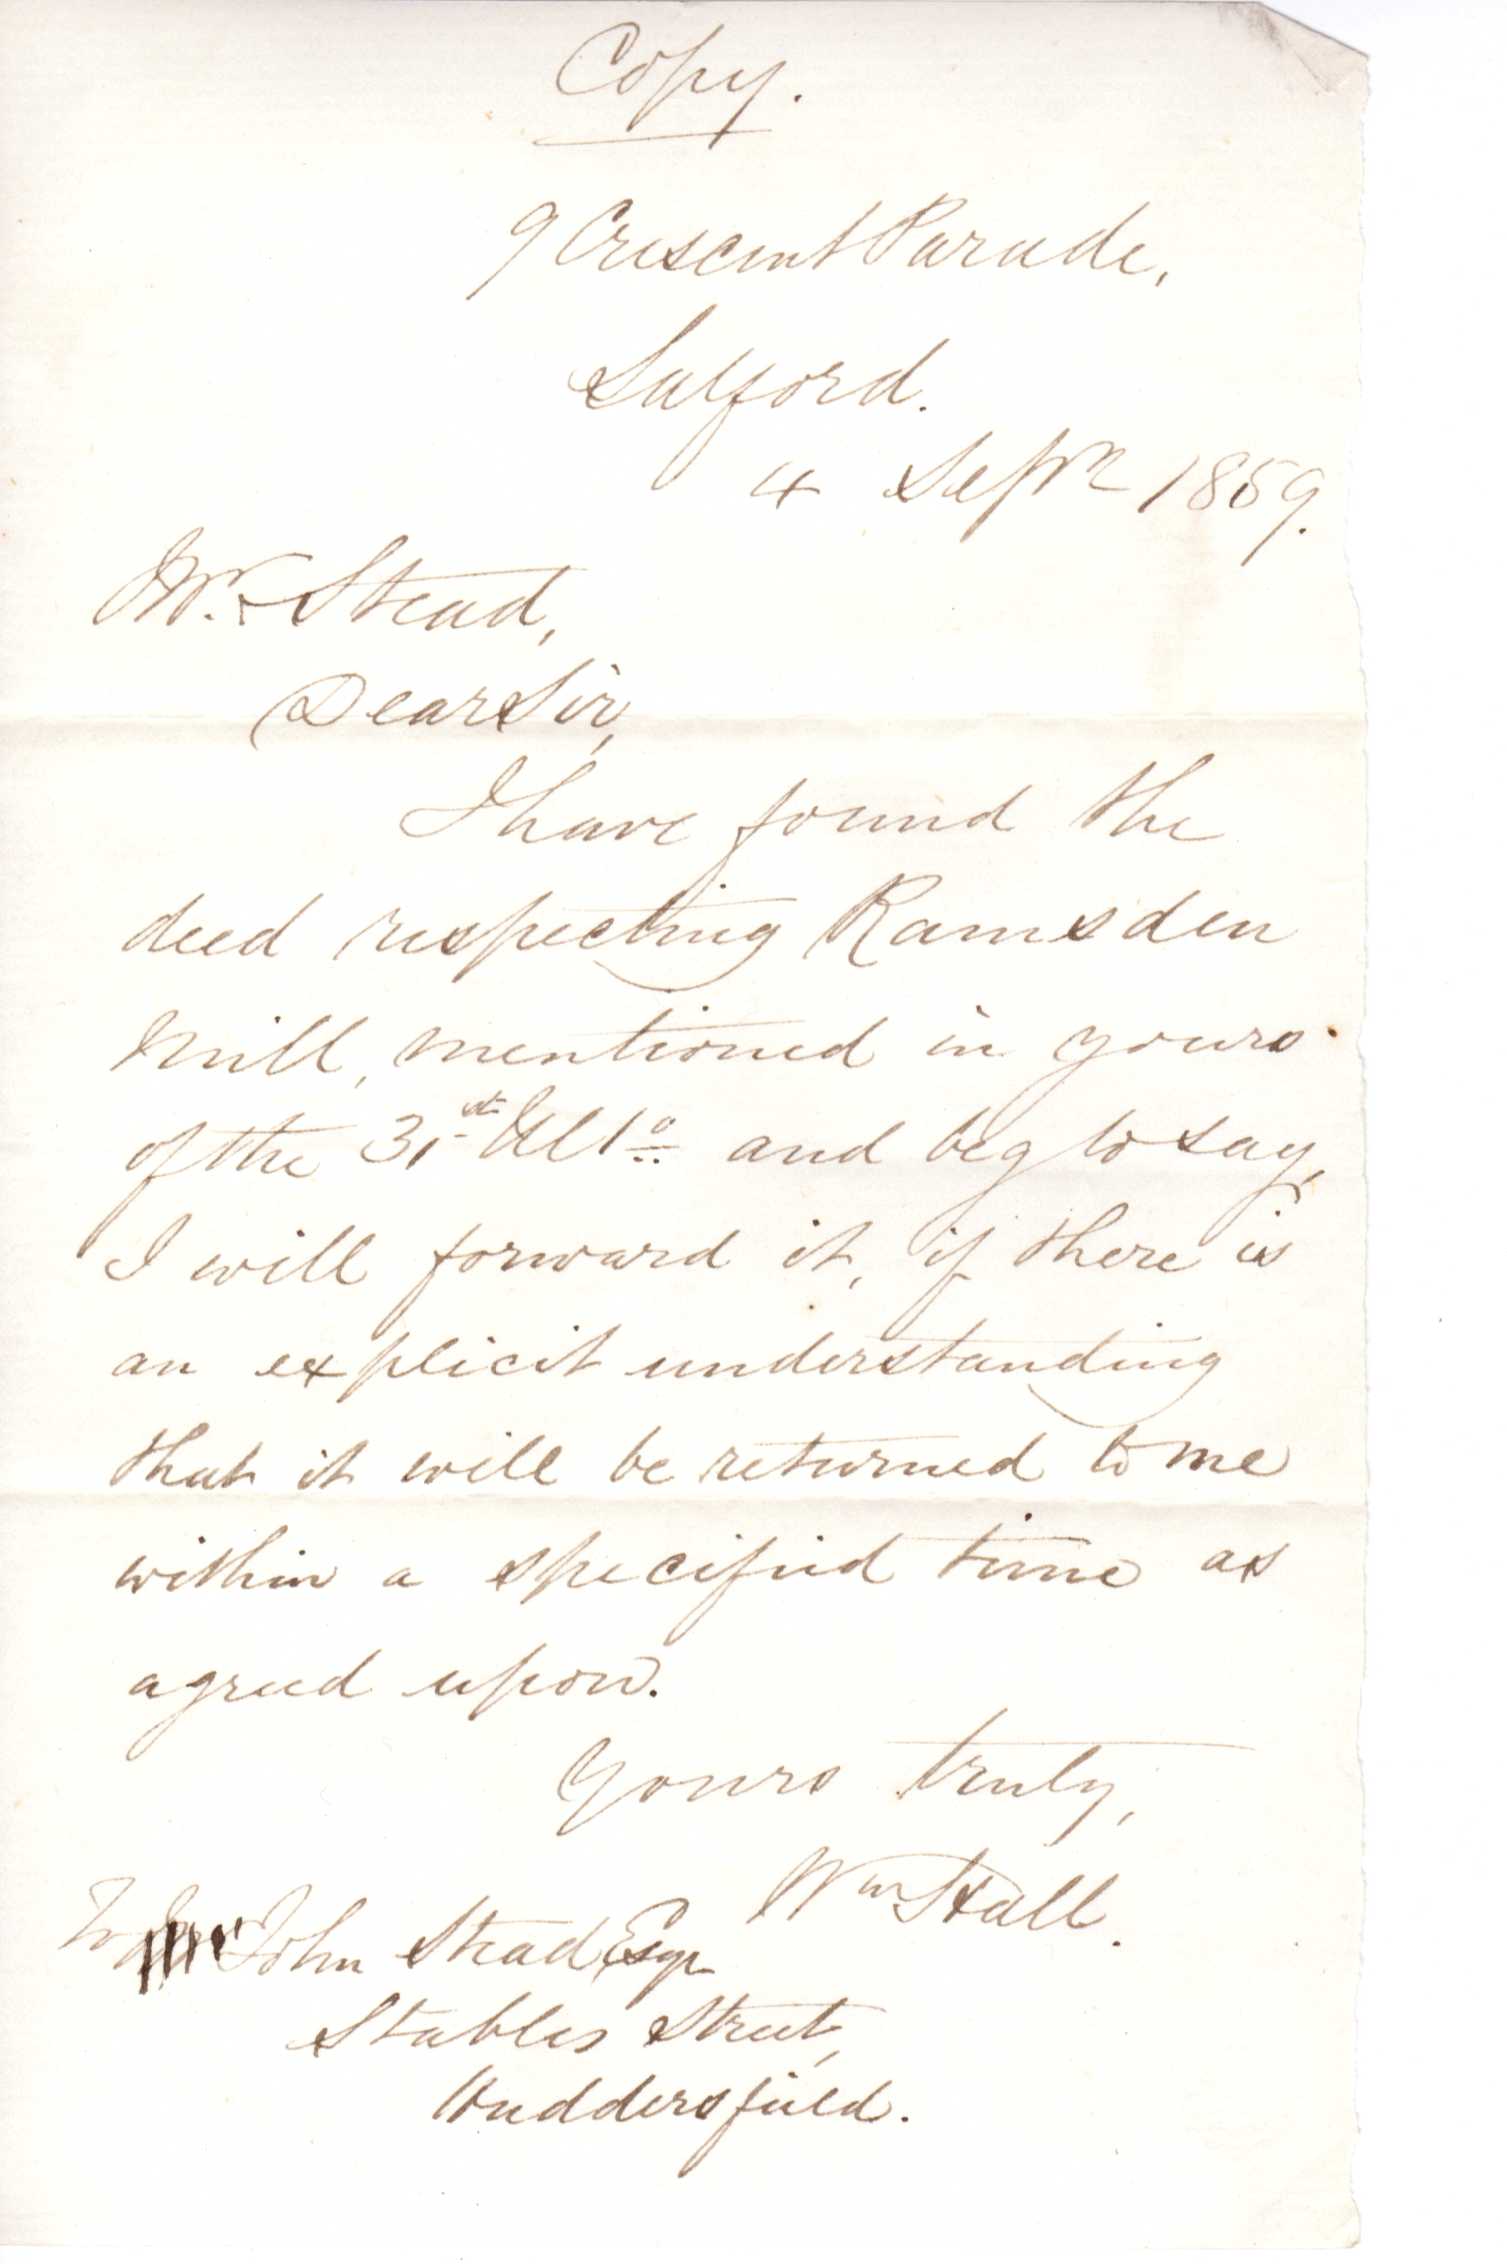 Copy.
9 Crescent Parade,
Salford.
4 Sepr 1859.
Mr. Stead,
Dear Sir,
I have found the
deed respecting Ramsden
Mill, mentioned in yours
of the 31st Ulto and beg to say,
I will forward it, if there is
an explicit understanding
that it will be returned to me
within a specified time as
agreed upon.
Yours truly,
Wm Stall.
To John Stead, Esqr
Stables Street,
Huddersfield.